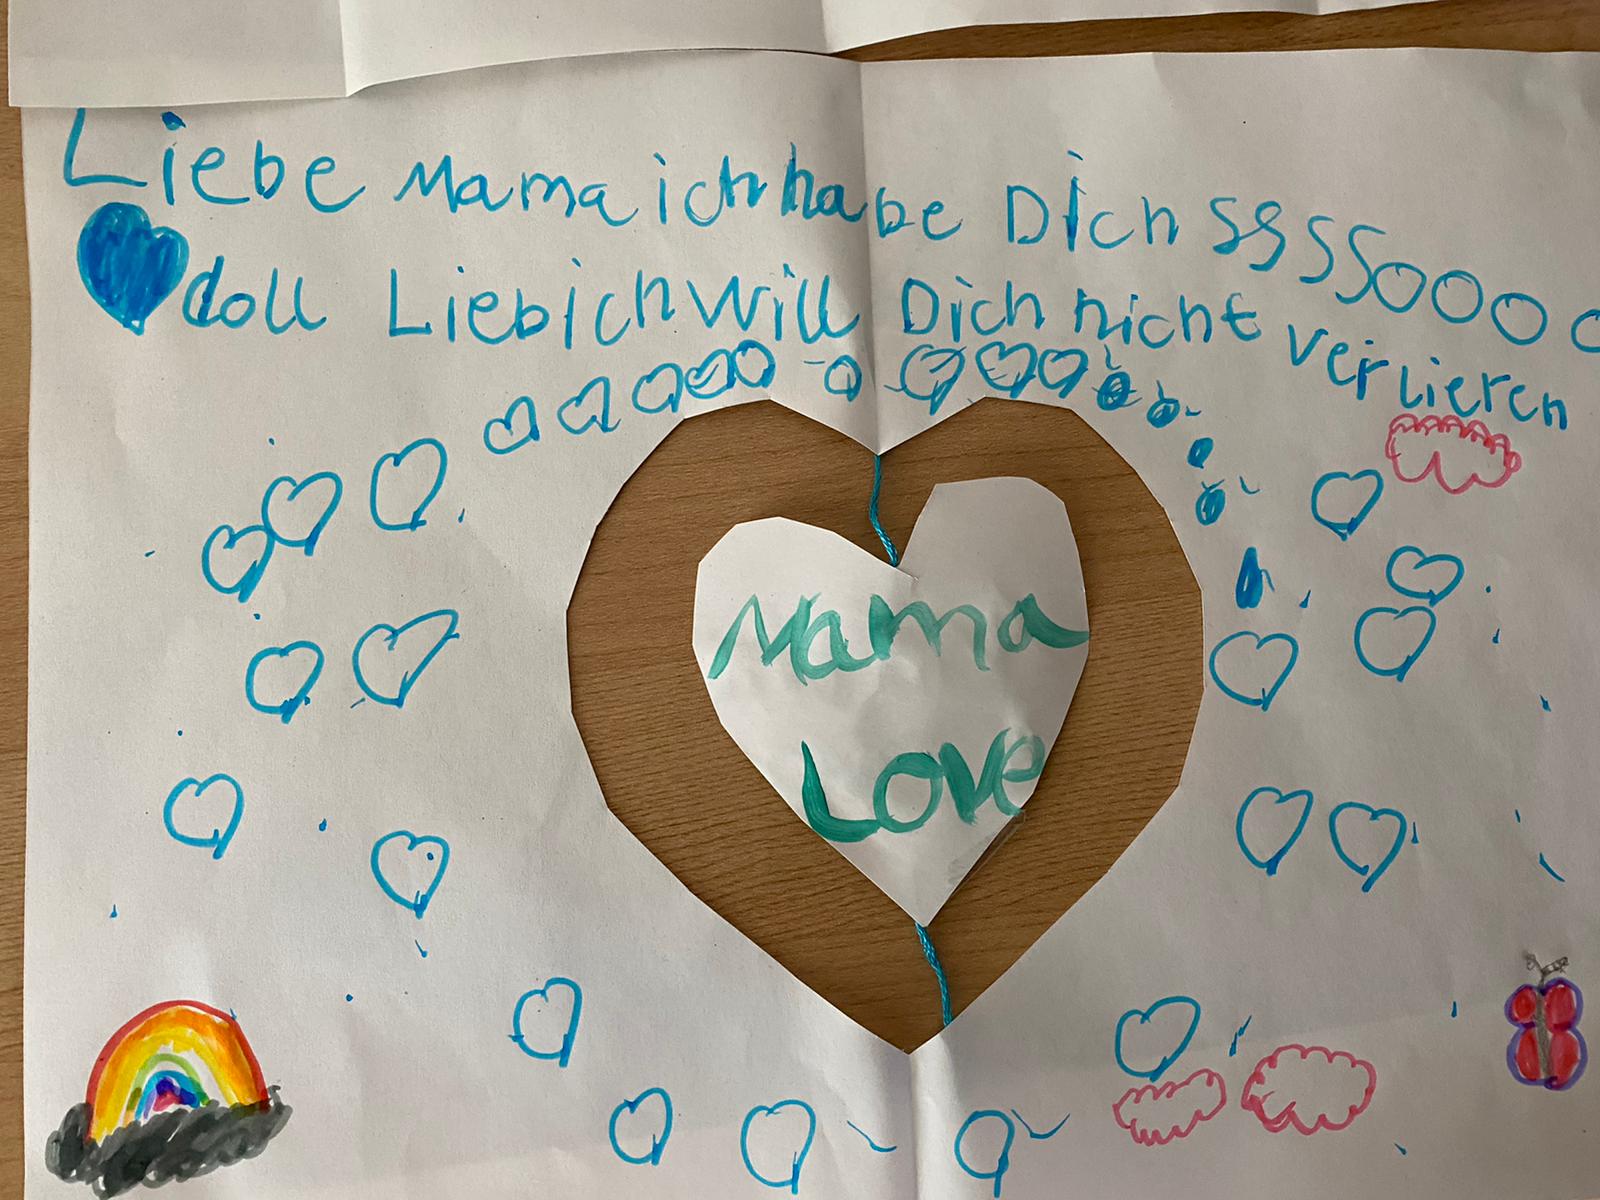 Liebe Mama ich habe Dich ssssoooo
doll Lieb ich will Dich nicht verlieren
Mama
LOVe